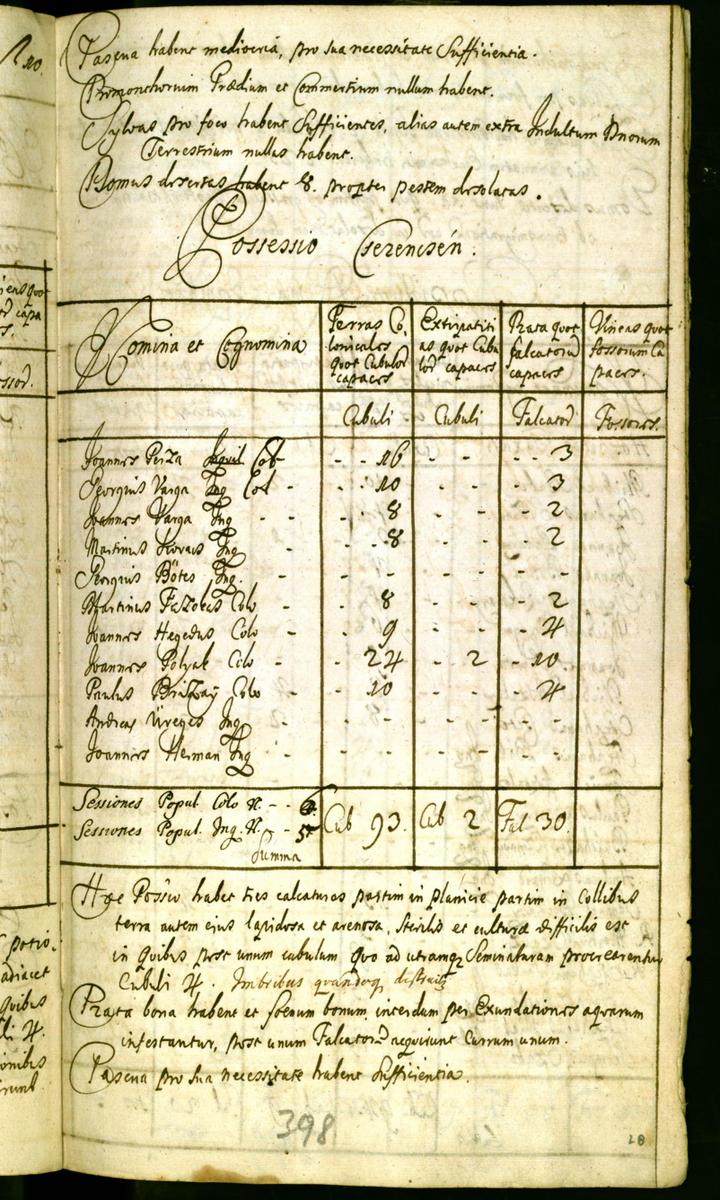 Pascua habent mediocria, pro sua necessitate sufficientia.
Promonthorium Prædium et Commertium nullum habent.
Sylvas pro foco habent Sufficientes, alias autem extra Indultum Dnorum
Terrestrium nullas habent.
Domus desertas habent 8. propter pestem desolatas.
Possessio Cserencsén.
Nomina et Cognomina
Terras Colonicales quot Cubulor capaces
Extirpatitias quot Cubulor capaces
Prata quot falcatorum capaces
Vineas quot fossorum Capaces.
Cubuli Cubuli Falcator Fossores.
Joannes Peiza Inquil Col - - 16 - - - - 3
Georgius Varga Inq Col - - - 10 - - - - 3
Joannes Varga Inq - - - - 8 - - - - 2
Martinus Inq - - - 8 - - - - 2
Georgius Bötes Inq. - - - - - - -
Martinus Fazekas Colo - 8 - - - 2
Joannes Hegedus Colo - - - 9 - - - 4
Joannes Polyak Colo - - - 24 - 2 - 10
Paulus Colo - - - 10 - - - 4
Andreas Üreges Inq - - - - - - -
Joannes Herman Inq - - - - - - -
Sessiones Popul Colo N. - - 6.
Sessiones Popul. Inq. N. - 5
Summa
Cub 93. Cub 2 Fal 30.
Hæc Possio habet tres calcaturas partim in planicie partim in Collibus
terra autem ejus lapidosa et arenosa, sterilis et culturæ difficilis est
in quibus post unum cubulum quo ad utramq Seminaturam procrearentur
Cubuli 4. Imbribus quandoq
Prata bona habent et foenum bonum interdum per Exundationes aquarum
infestantur, post unum Falcator acquirunt Currum unum.
Pascua pro sua necessitate habent sufficientia.
398
28